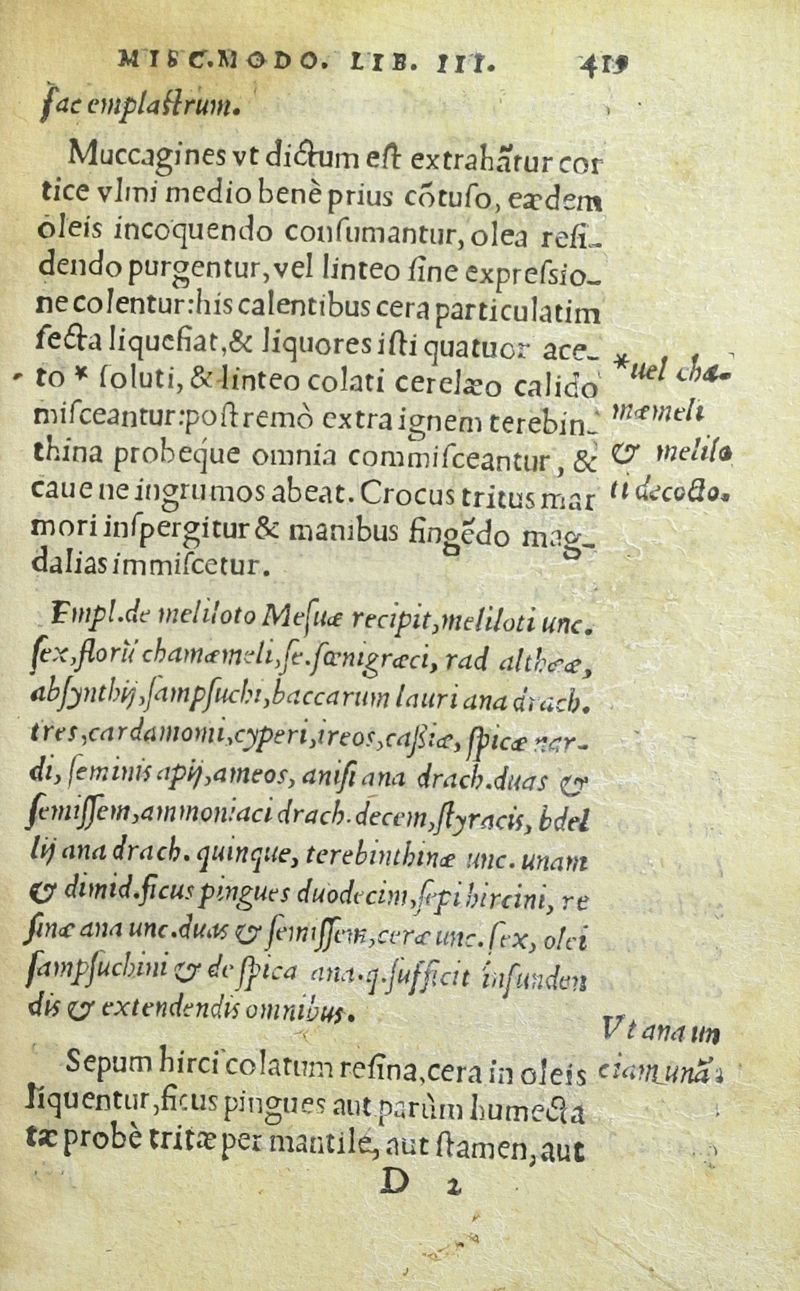 MISC.MODO. LIB. III. 419
fac emplaſtrum.
Muccagines vt dictum eſt extrahãtur cor
tice vlmi medio benè prius cõtuſo, eædem
oleis incoquendo conſumantur, olea reſi-
dendo purgentur, vel linteo ſine expreſsio-
ne colentur: his calentibus cera particulatim
ſecta liquefiat, & liquores iſti quatuor ace-
to * ſoluti, & linteo colati cerelæo calido
miſceantur: poſtremò extra ignem terebin-
thina probeque omnia commiſceantur, &
caue ne in grumos abeat. Crocus tritus mar
mori inſpergitur & manibus fingẽdo mag-
dalias immiſcetur.
*uel cha-
mæmeli
& melilo
ti decocto.
Empl. de meliloto Meſuæ recipit, meliloti unc.
ſex, florū chamæmeli, ſe. fœnigræci, rad altheæ,
abſynthij, ſampſuchi, baccarum lauri ana drach.
tres, cardamomi, cyperi, ireos, caßiæ, ſpicæ nar-
di, ſeminis apij, ameos, aniſi ana drach. duas &
ſemiſſem, ammoniaci drach. decem, ſtyracis, bdel
lij ana drach. quinque, terebinthinæ unc. unam
& dimid. ficus pingues duodecim, ſepi hircini, re
ſinæ ana unc. duas & ſemiſſem, ceræ unc. ſex, olei
ſampſuchini & de ſpica ana. q. ſufficit infunden
dis & extendendis omnibus.
Vt ana un
ciam unã
Sepum hirci colatum reſina, cera in oleis
liquentur, ficus pingues aut parùm humecta
tæ probè tritæ per mantile, aut ſtamen, aut
D 2